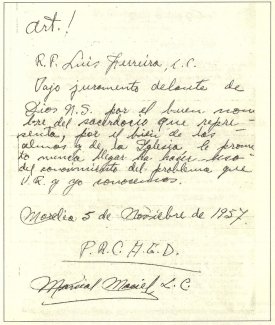 art.!
R.P. Luis Ferreira, L.C.
Vajo juramento delante de
Dios N.S. por el buen nom
bre del sacerdocio que repre-
senta, por el bien de las
almas y de la Iglesia le prome
to nunca llegar ha hacer uso
del conocimiento del problema que
V.R. y yo conocemos.
Morelia 5 de Noviembre de 1957.
P.R.C.A.G.D.
Marcial Maciel L.C.